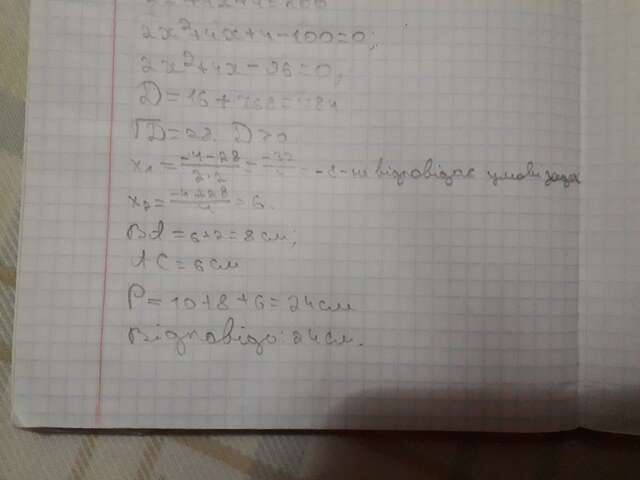 2x²+4x+4-100=0;
2x²+4x-96=0,
D=16+768=784
√D=28. D>0.
x₁=(-4-28)/(2·2)=(-32)/4=-8-не відповідає умови задачі
x₂=(-4+28)/4=6.
Bd=6+2=8см;
AC=6см
P=10+8+6=24см
Відповідь: 24см.